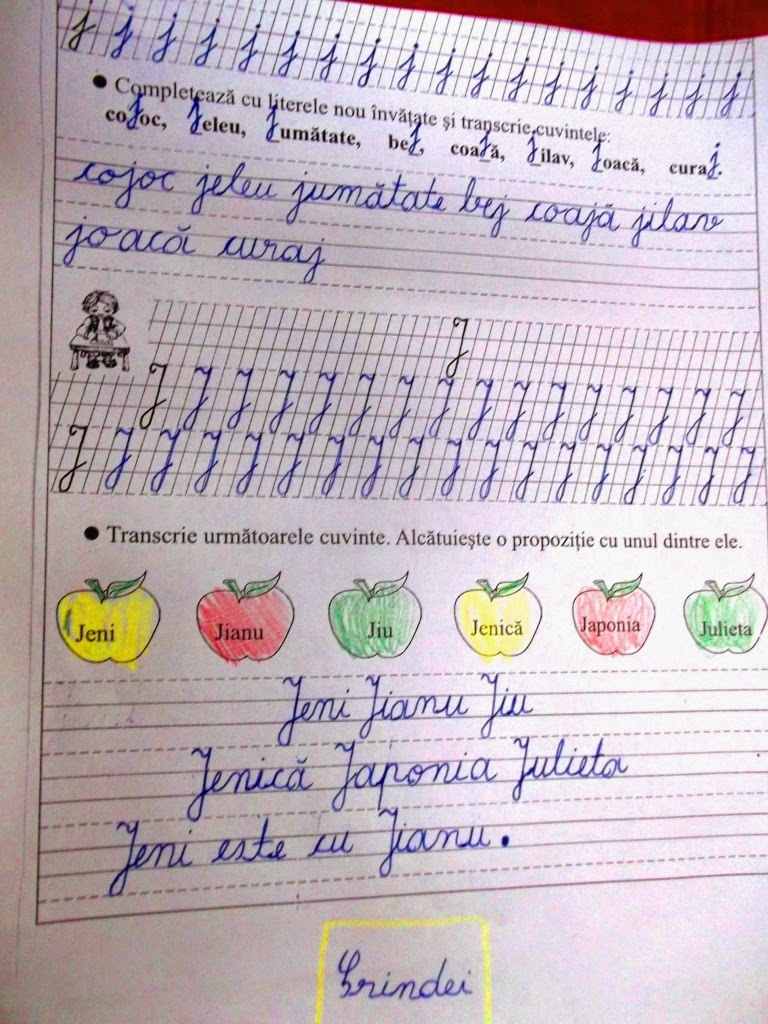 j j j j j j j j j j j j j j j j j j
• Completează cu literele nou învățate și transcrie cuvintele:
cojoc, jeleu, jumătate, bej, coajă, jilav, joacă, curaj.
cojoc jeleu jumătate bej coajă jilav
joacă curaj
J
J J J J J J J J J J J J J J J J
J J J J J J J J J J J J J J J J J J
• Transcrie următoarele cuvinte. Alcătuiește o propoziție cu unul dintre ele.
Jeni Jianu Jiu Jenică Japonia Julieta
Jeni Jianu Jiu
Jenică Japonia Julieta
Jeni este cu Jianu.
Grindei